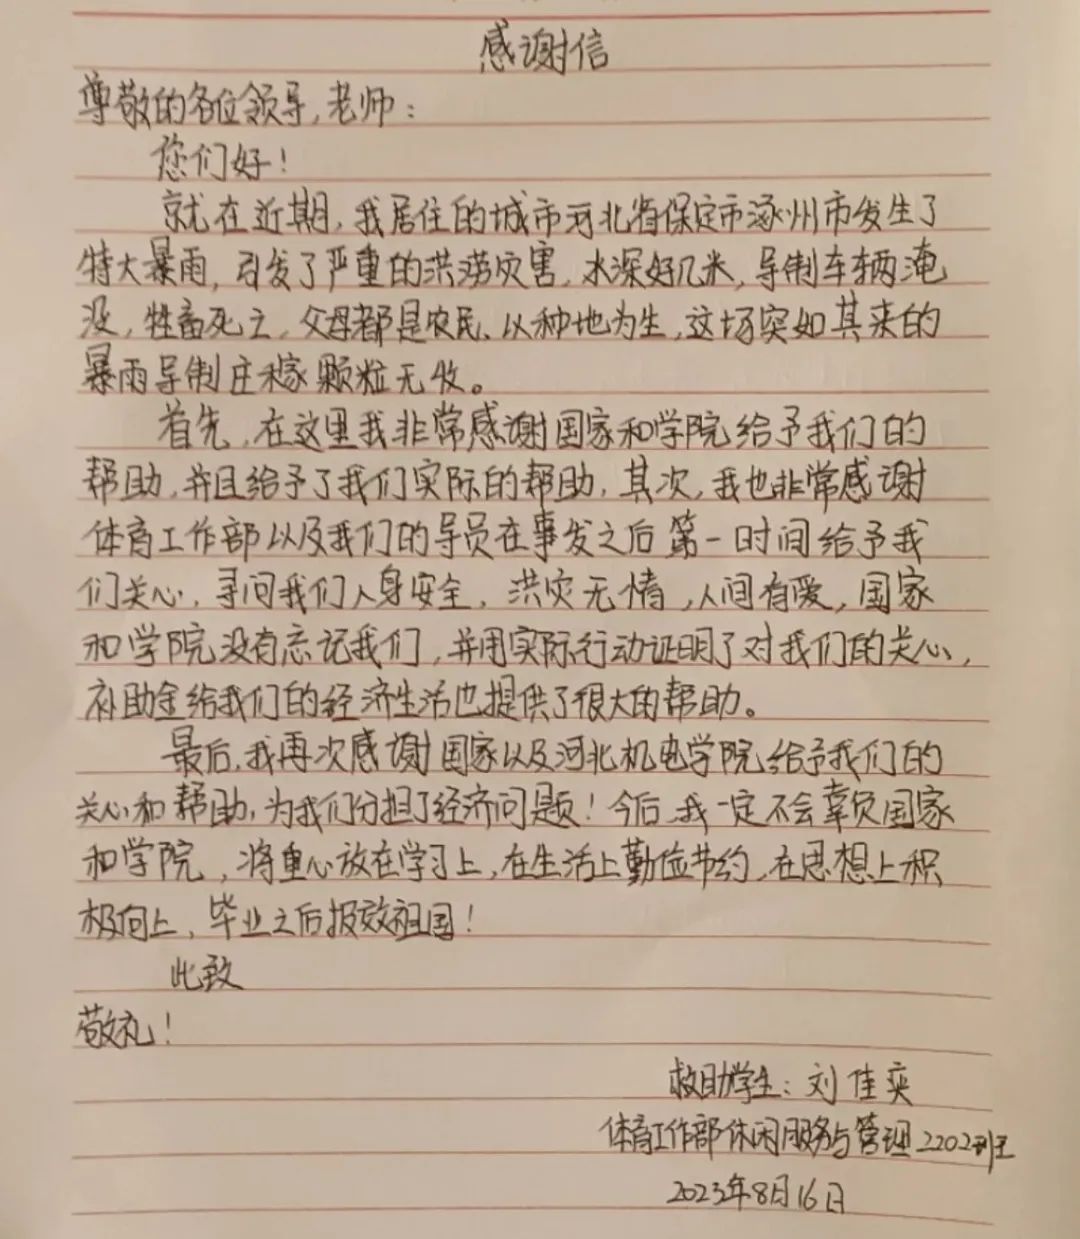 感谢信
尊敬的各位领导,老师:
您们好!
就在近期,我居住的城市河北省保定市涿州市发生了
特大暴雨,引发了严重的洪涝灾害,水深好几米,导制车辆淹
没,牲畜死亡,父母都是农民、以种地为生,这场突如其来的
暴雨导制庄稼颗粒无收。
首先,在这里我非常感谢国家和学院给予我们的
帮助,并且给予了我们实际的帮助,其次,我也非常感谢
体育工作部以及我们的导员在事发之后第一时间给予我
们关心,寻问我们人身安全,洪灾无情,人间有爱,国家
和学院没有忘记我们,并用实际行动证明了对我们的关心,
补助金给我们的经济生活也提供了很大的帮助。
最后,我再次感谢国家以及河北机电学院给予我们的
关心和帮助,为我们分担了经济问题!今后,我一定不会辜负国家
和学院,将重心放在学习上,在生活上勤俭节约,在思想上积
极向上,毕业之后报效祖国!
此致
敬礼!
救助学生:刘佳奕
体育工作部休闲服务与管理2202班
2023年8月16日